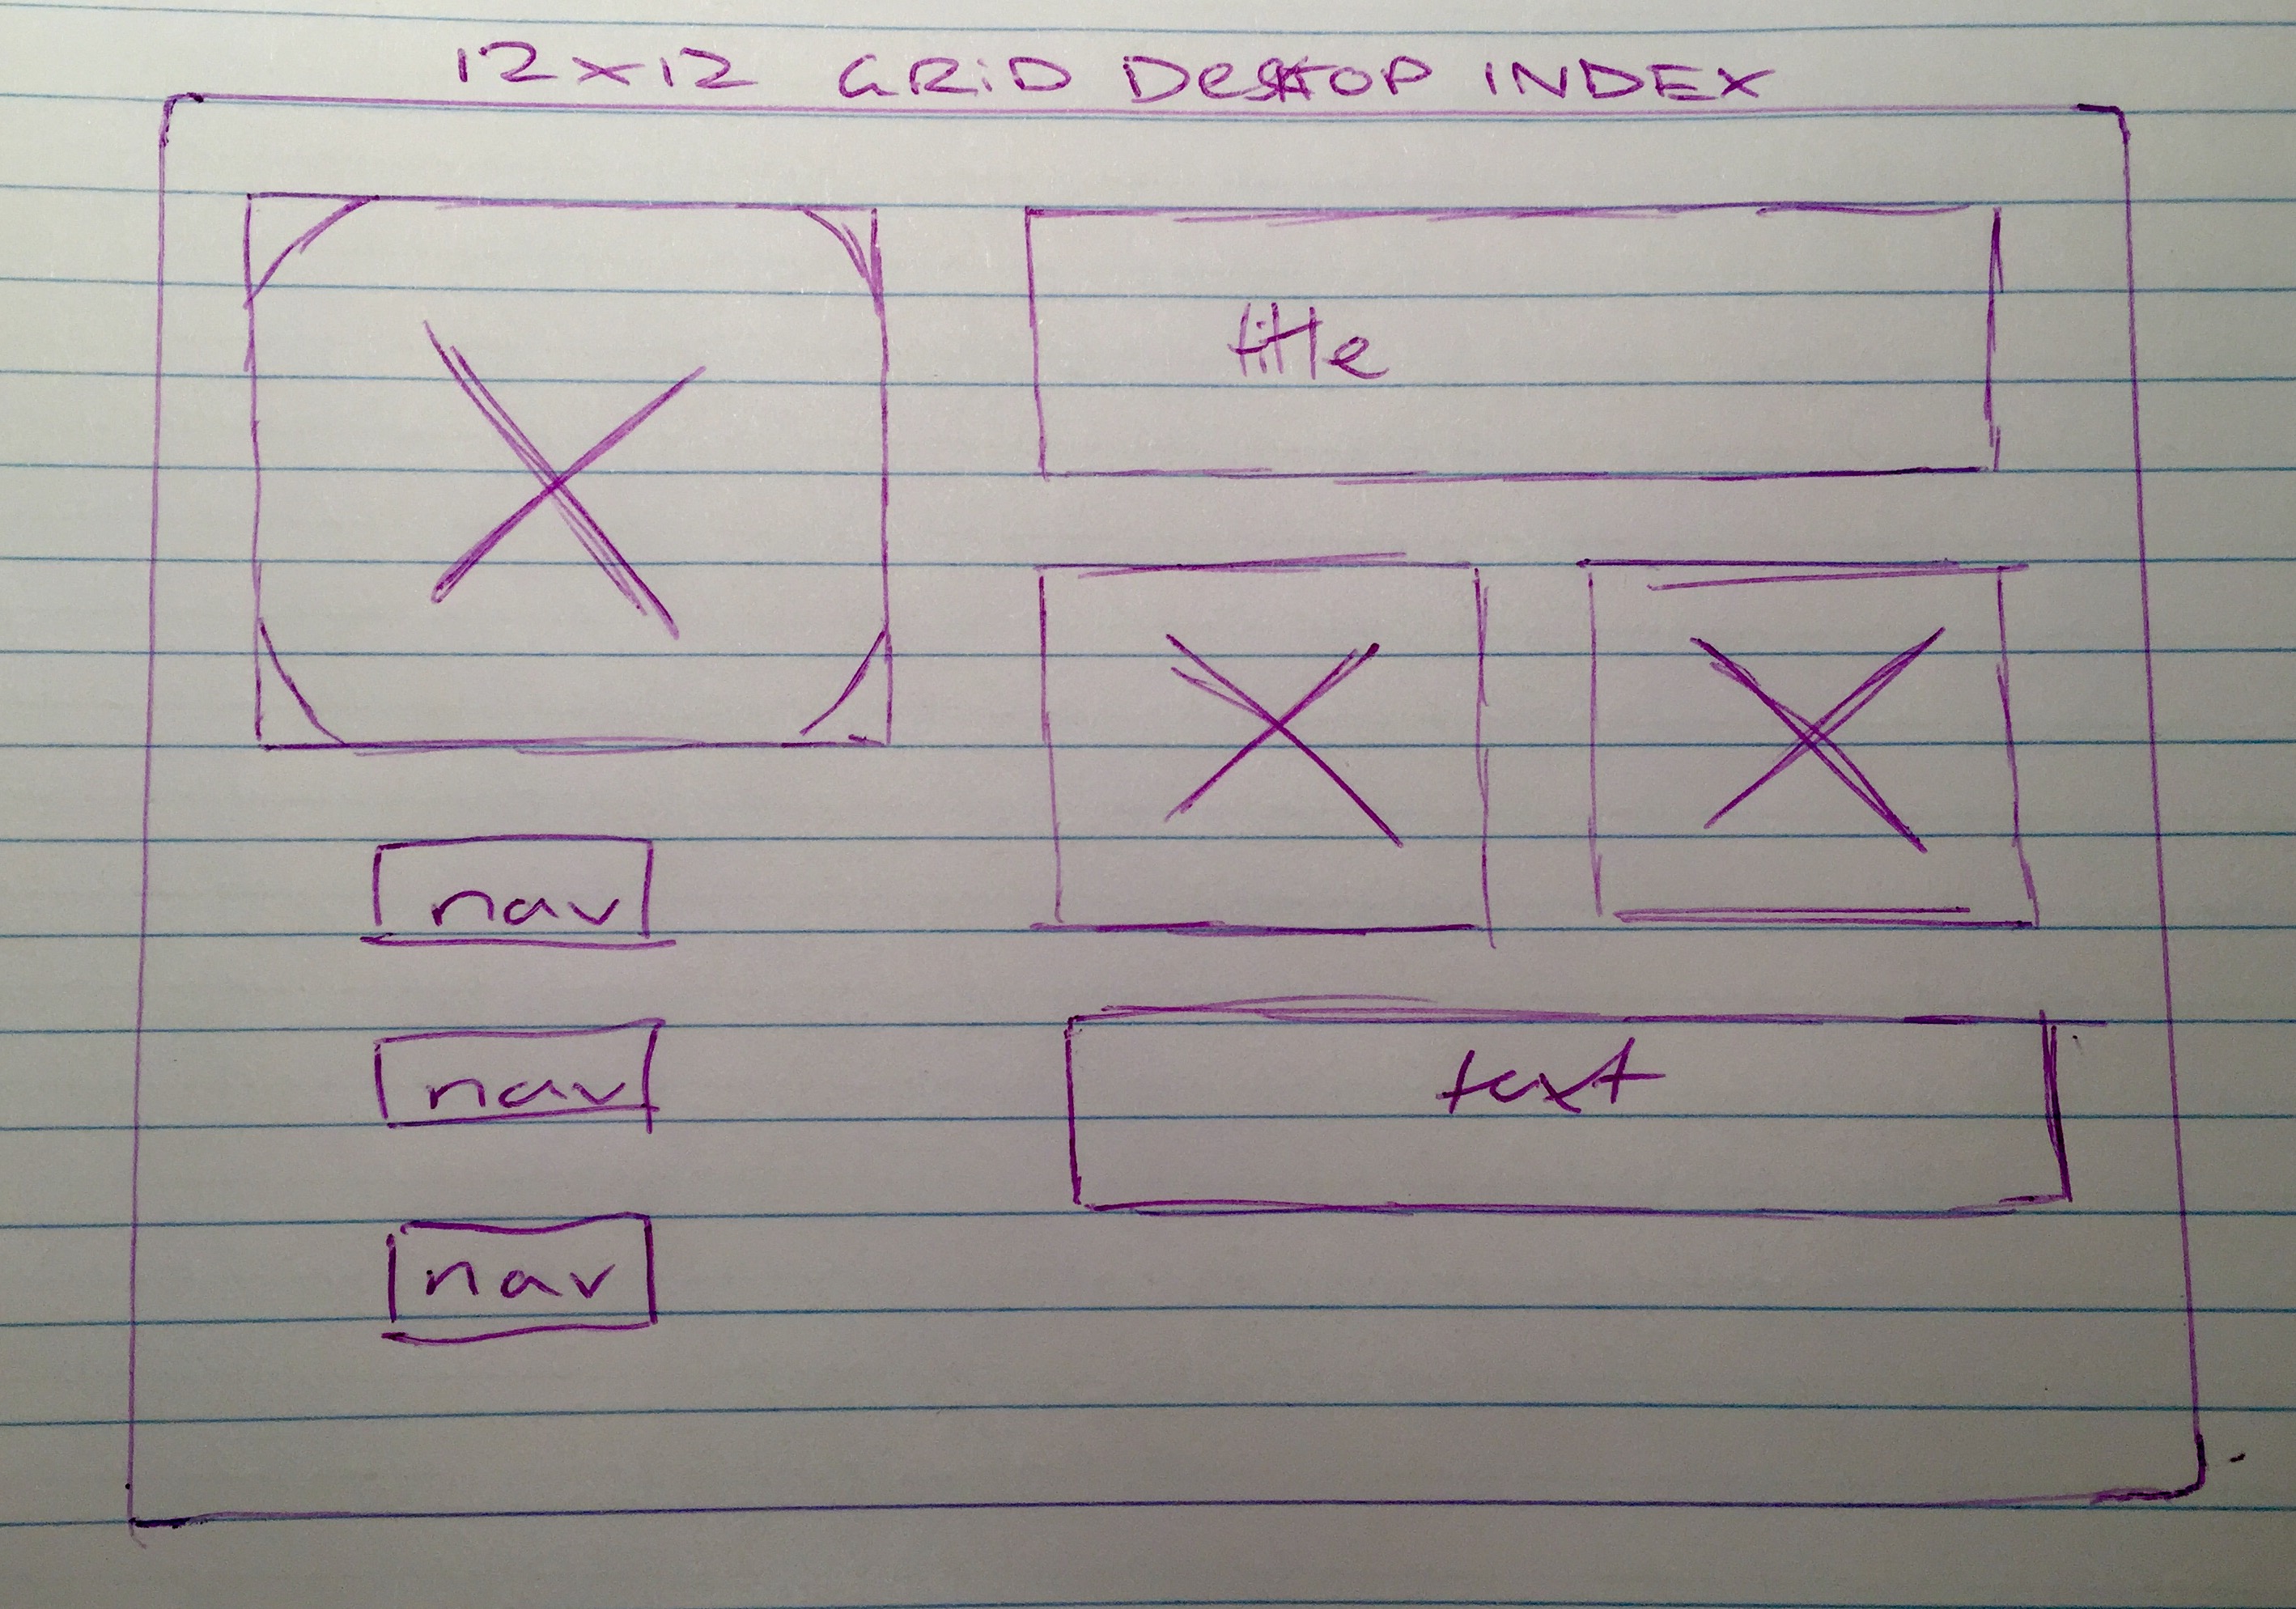 12x12 GRiD DeskTOP INDEX
title
nav
nav
text
nav